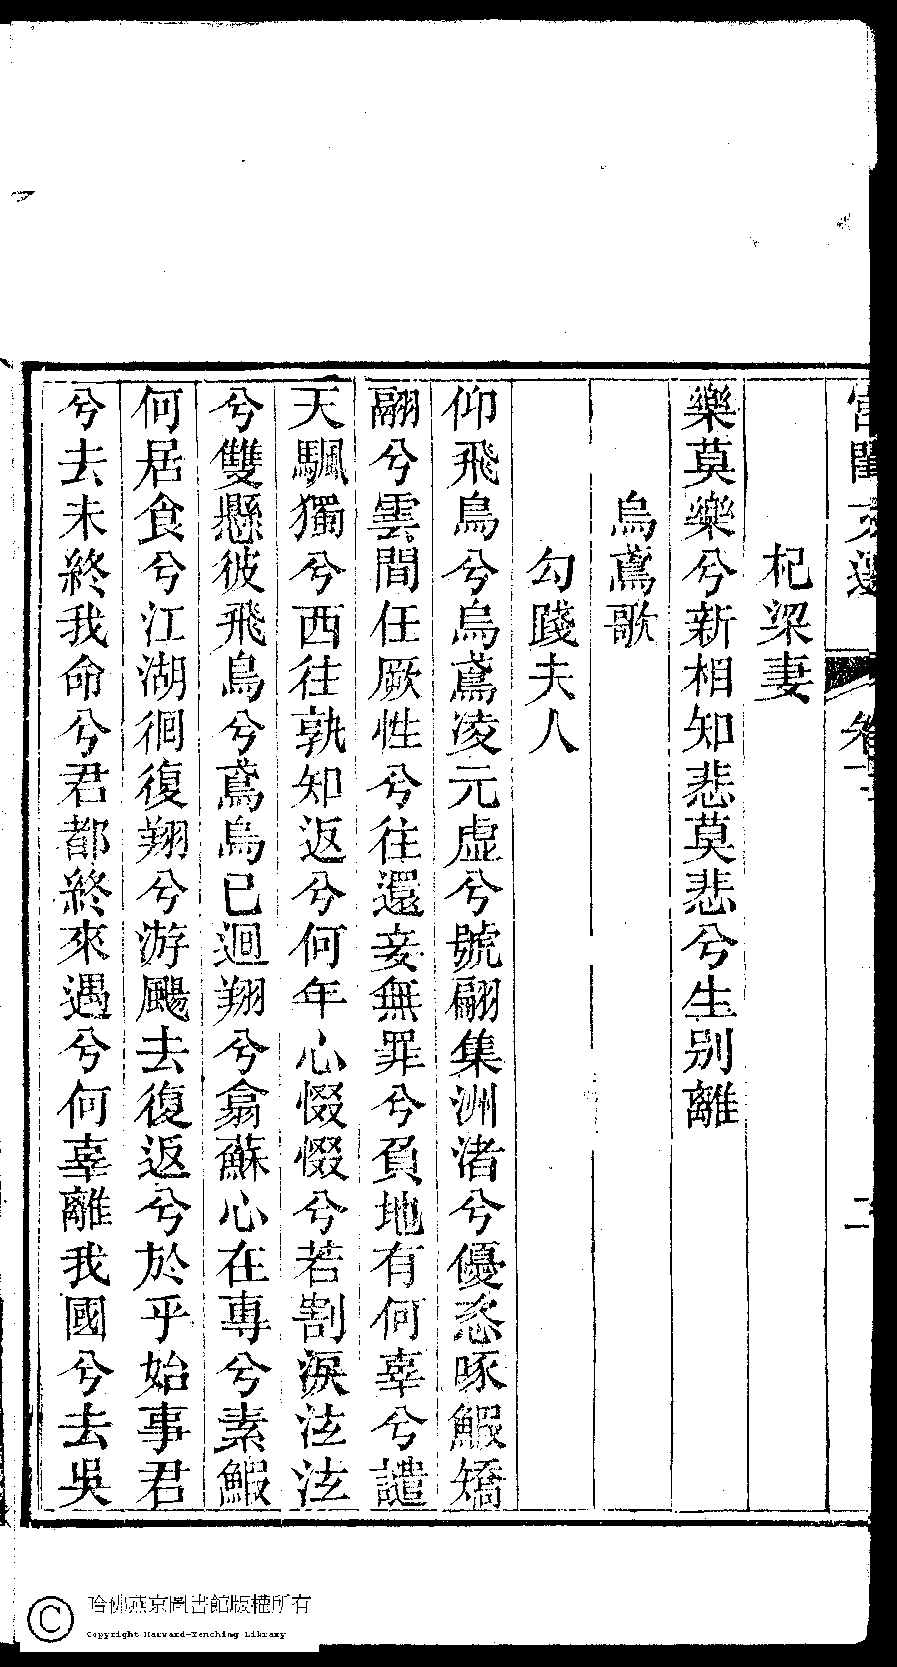 宮閨文選 卷十 二
杞梁妻
樂莫樂兮新相知悲莫悲兮生別離
烏鳶歌
勾踐夫人
仰飛鳥兮烏鳶凌元虛兮號翩集洲渚兮優恣啄鰕矯
翮兮雲間任厥性兮往還妾無罪兮負地有何辜兮譴
天颿獨兮西往孰知返兮何年心惙惙兮若割淚泫泫
兮雙懸彼飛鳥兮鳶烏已迴翔兮翕蘇心在專兮素鰕
何居食兮江湖徊復翔兮游颺去復返兮於乎始事君
兮去未終我命兮君都終來遇兮何辜離我國兮去吳
哈佛燕京圖書館版權所有
Copyright Harvard-Yenching Library